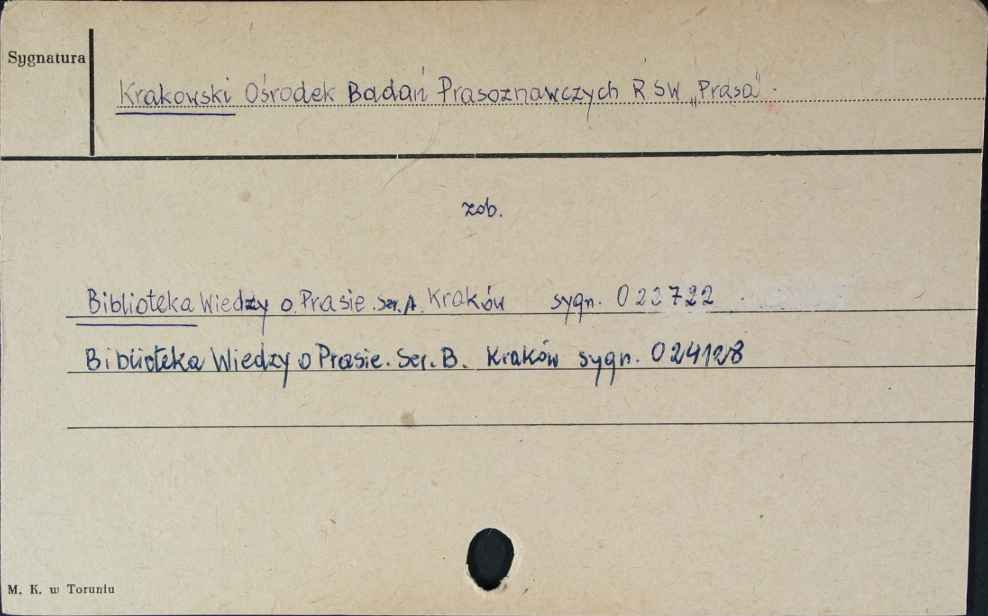 Sygnatura
Krakowski Ośrodek Badań Prasoznawczych RSW „Prasa”.
zob.
Biblioteka Wiedzy o Prasie. Ser. A. Kraków sygn. 022722
Biblioteka Wiedzy o Prasie. Ser. B. Kraków sygn. 024128
M. K. w Toruniu